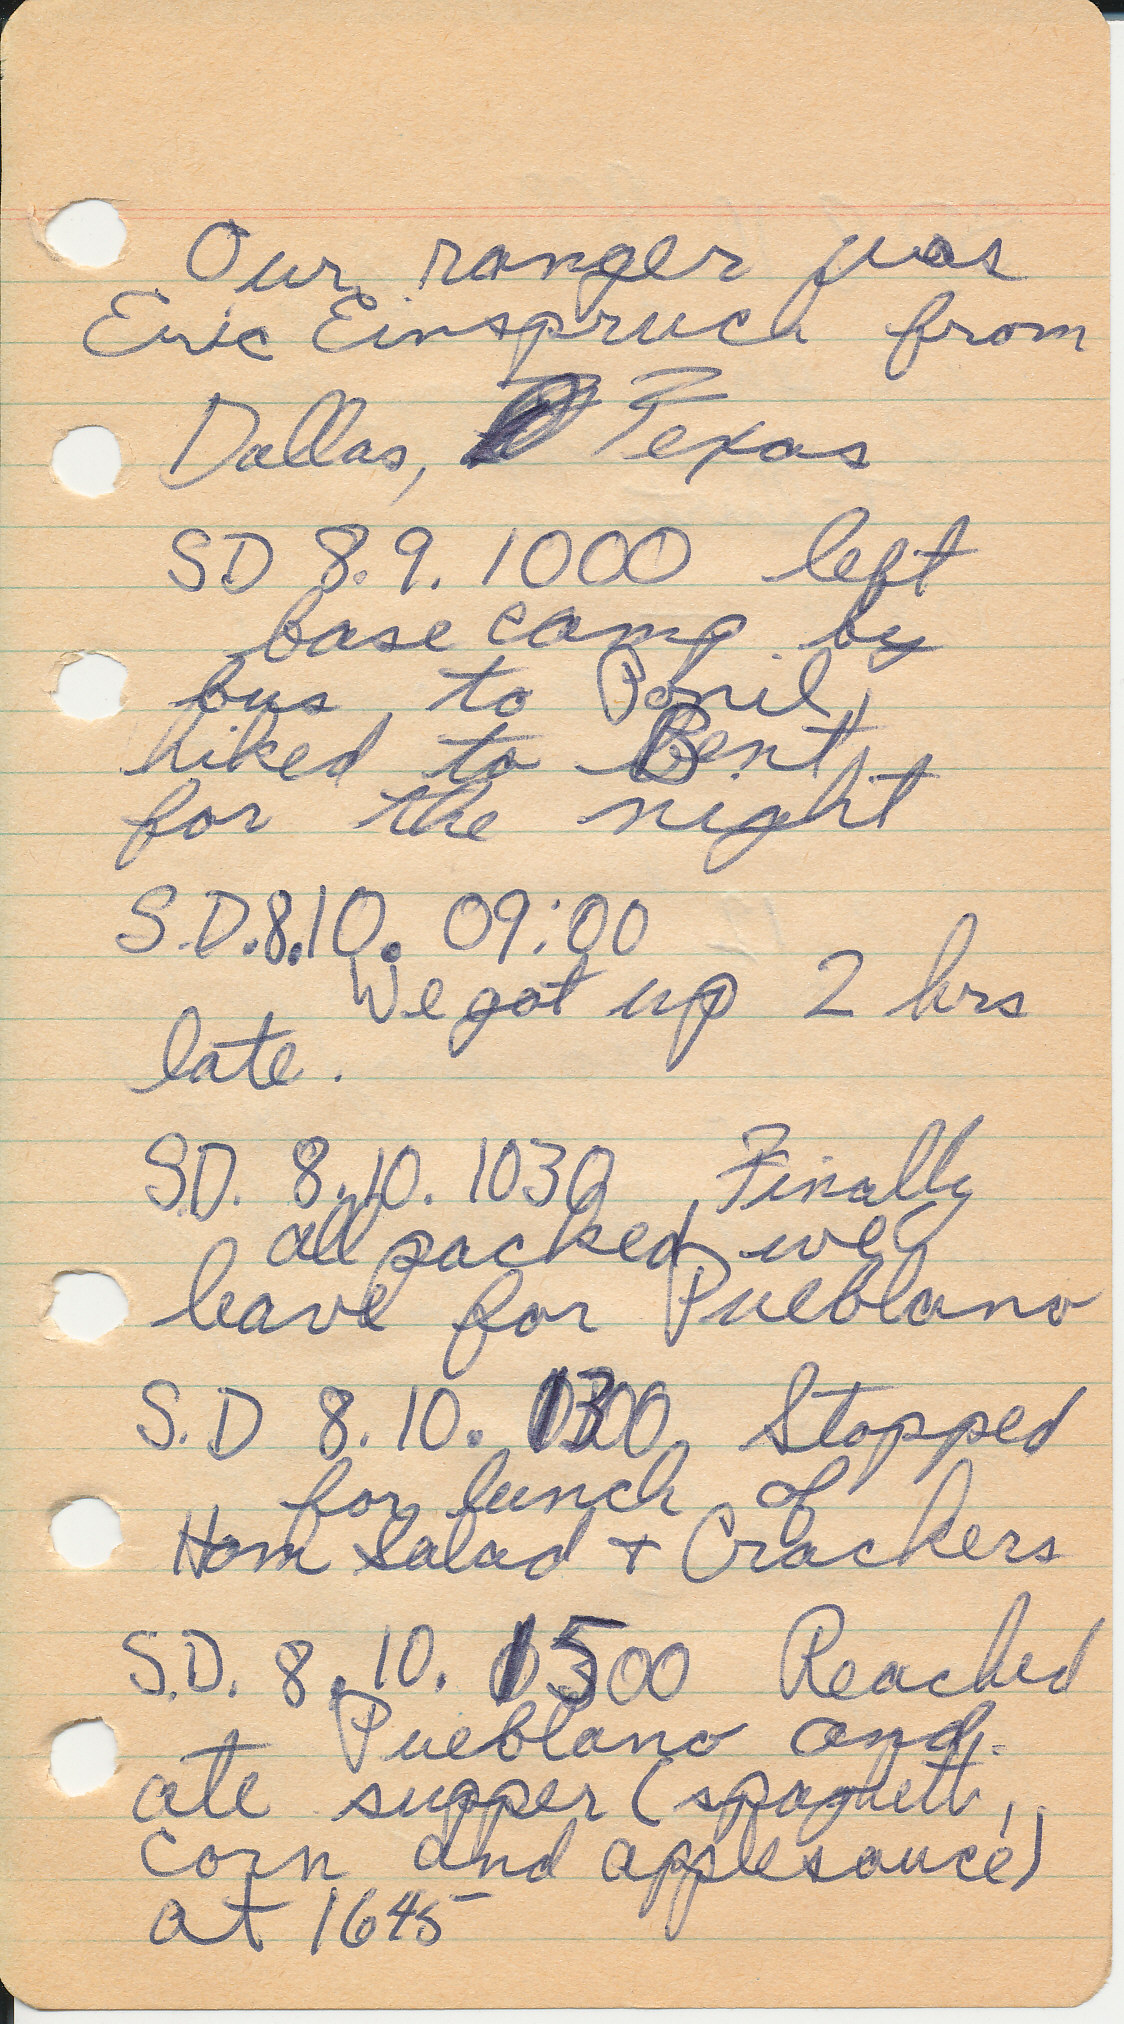 Our ranger was
Eric Einspruch from
Dallas, Texas
SD 8.9. 1000 left
base camp by
bus to Ponil,
hiked to Bent,
for the night
S.D.8.10. 09:00
We got up 2 hrs
late.
S.D. 8.10. 1030 Finally
all packed we
leave for Pueblano
S.D 8.10. 1300 Stopped
for lunch of
Ham Salad + Crackers
S.D. 8.10. 1500 Reached
Pueblano and
ate supper (spaghetti,
corn and applesauce)
at 1645